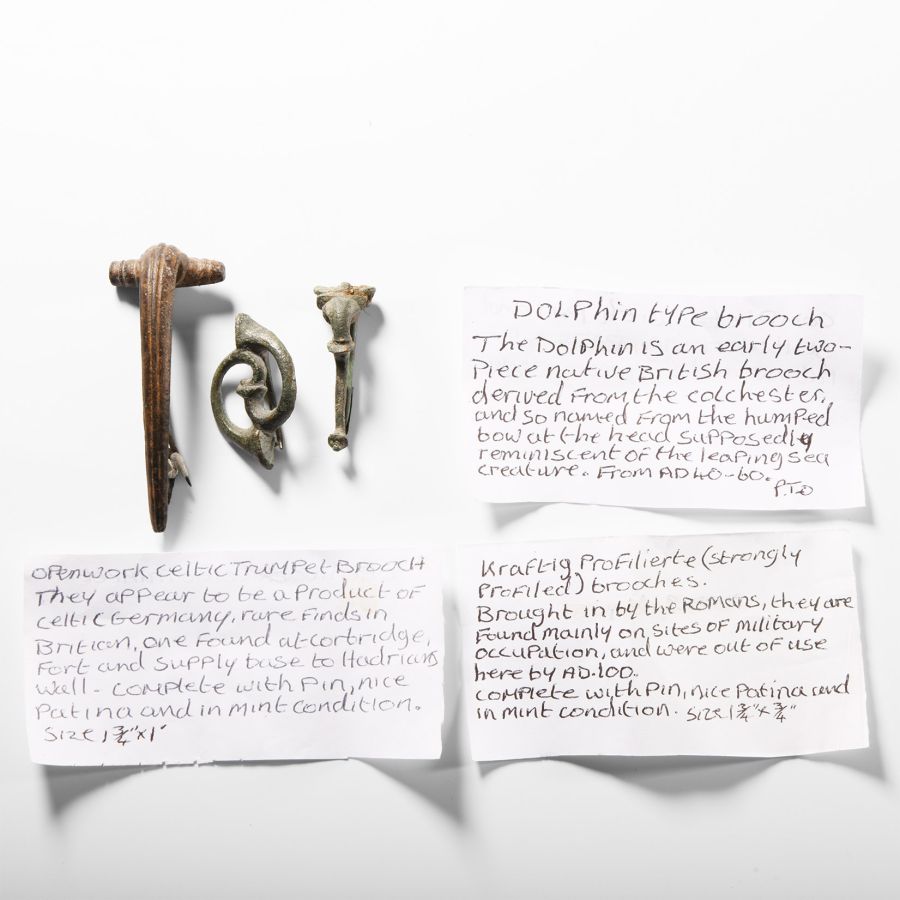 DOLPhin tYPe brooch
The DolPhin is an early two-
Piece native British brooch
derived From the colchester,
and so named From the humped
bow at the head supposedly
reminiscent of the leaping sea
creature. From AD 40-60.
P.T.O
OPenwork celtic Trumpet Brooch
They appear to be a Product of
celtic Germany, rare Finds in
Britian, one Found at cortridge,
Fort and supply base to Hadrians
wall - complete with Pin, nice
Patina and in mint condition.
Size 1 3/4" x 1"
Kraftig ProFilierte (strongly
ProFiled) brooches.
Brought in by the Romans, they are
Found mainly on sites of military
occupation, and were out of use
here by AD.100.
complete with Pin, nice Patina and
in mint condition. Size 1 3/4" x 3/4"